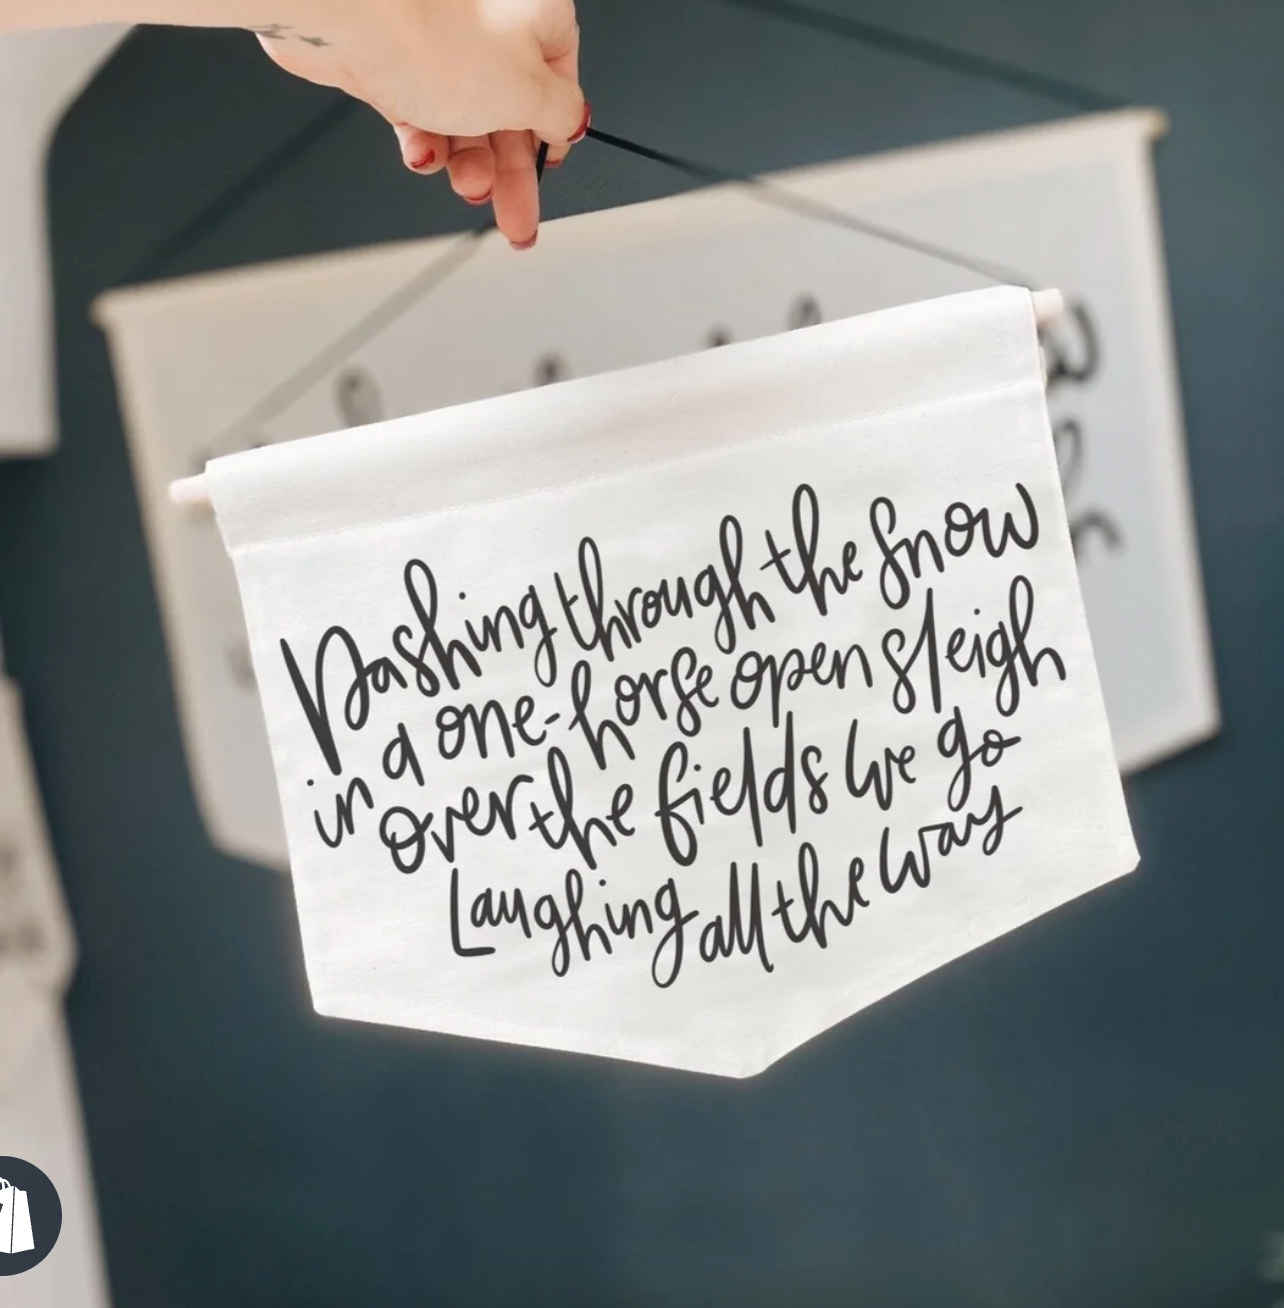 Dashing through the Snow
in a one-horse open sleigh
over the fields we go
Laughing all the way